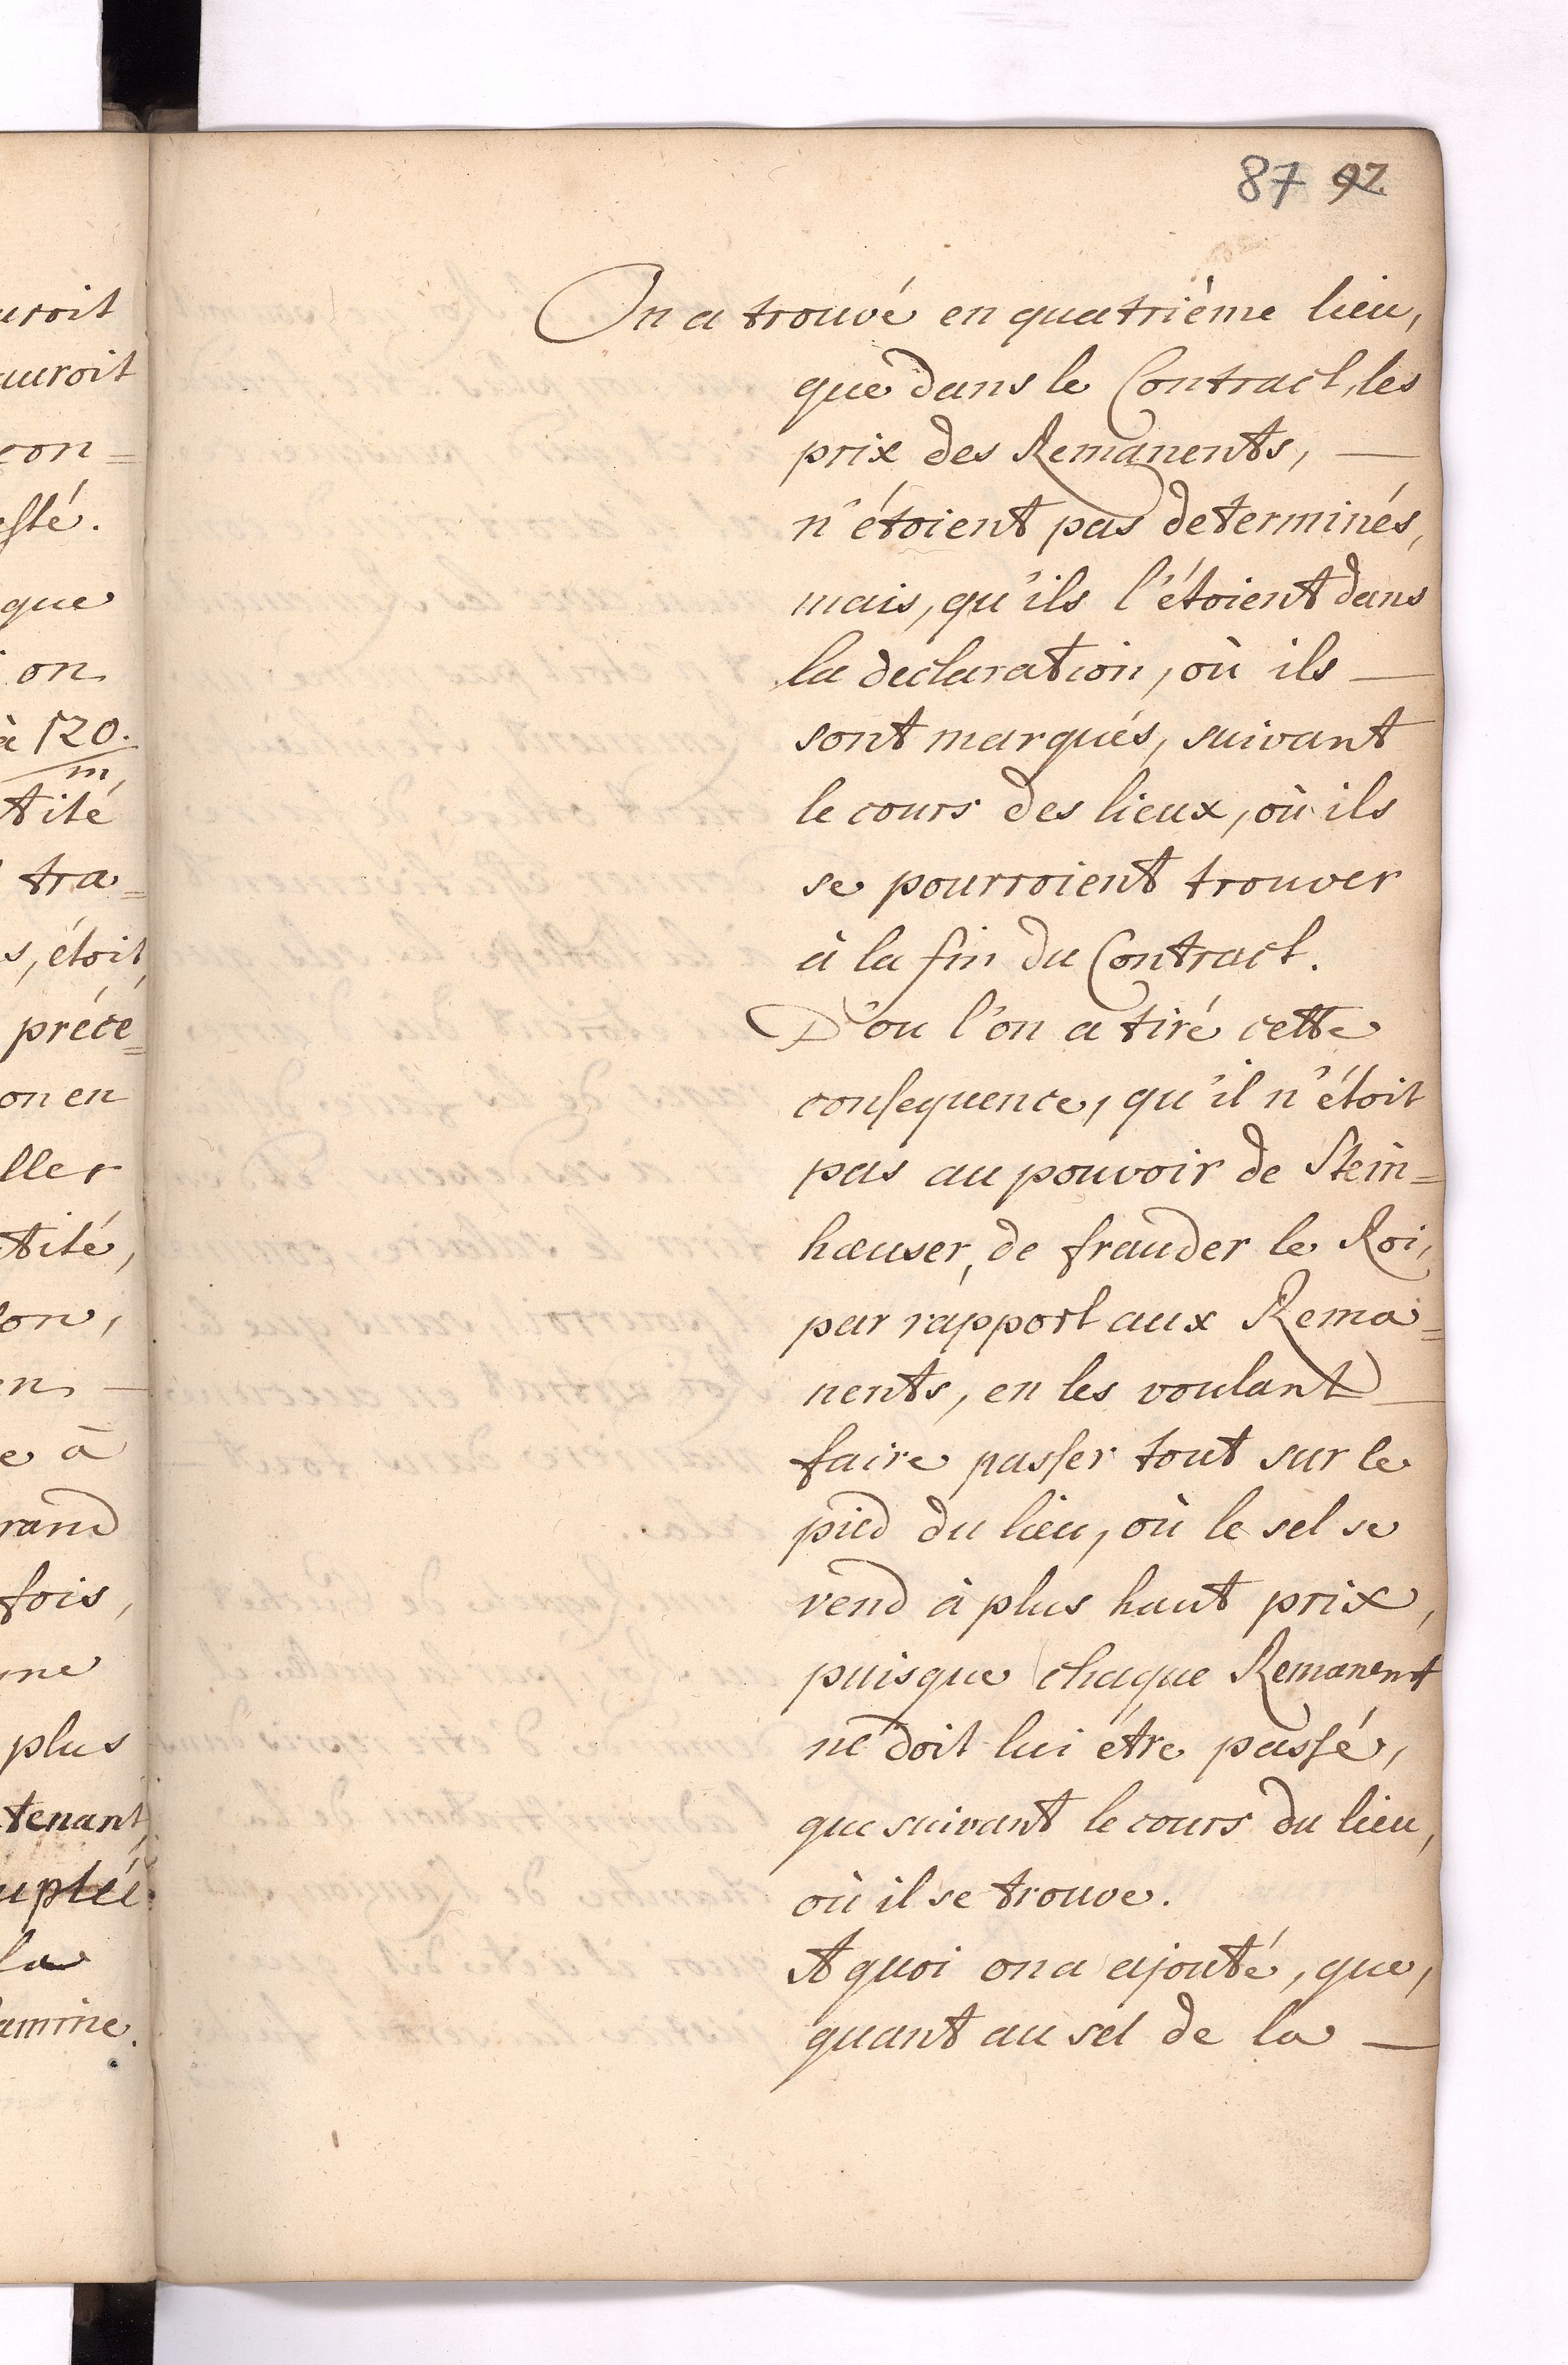 uroit
auroit
con=
esté.
que
on
à 120.
m,
tité
tra=
s, étoit,
précé=
on en
ller
tité,
on,
en —
e à
rand
fois,
me
plus
tenant,
uptée.
la
amine.
87 92
On a trouvé en quatriéme lieu,
que dans le Contract, les
prix des Remanents, —
n'étoient pas determinés,
mais, qu'ils l'étoient dans
la declaration, où ils —
sont marqués, suivant
le cours des lieux, où ils
se pourroient trouver
à la fin du Contract.
D'ou l'on a tiré cette
consequence, qu'il n'étoit
pas au pouvoir de Stein=
hæuser, de frauder le Roi,
par rapport aux Rema=
nents, en les voulant —
faire passer tout sur le
pied du lieu, où le sel se
vend à plus haut prix,
puisque chaque Remanent
ne doit lui étre passé,
que suivant le cours du lieu,
où il se trouve.
A quoi on a ajouté, que,
quant au sel de la —